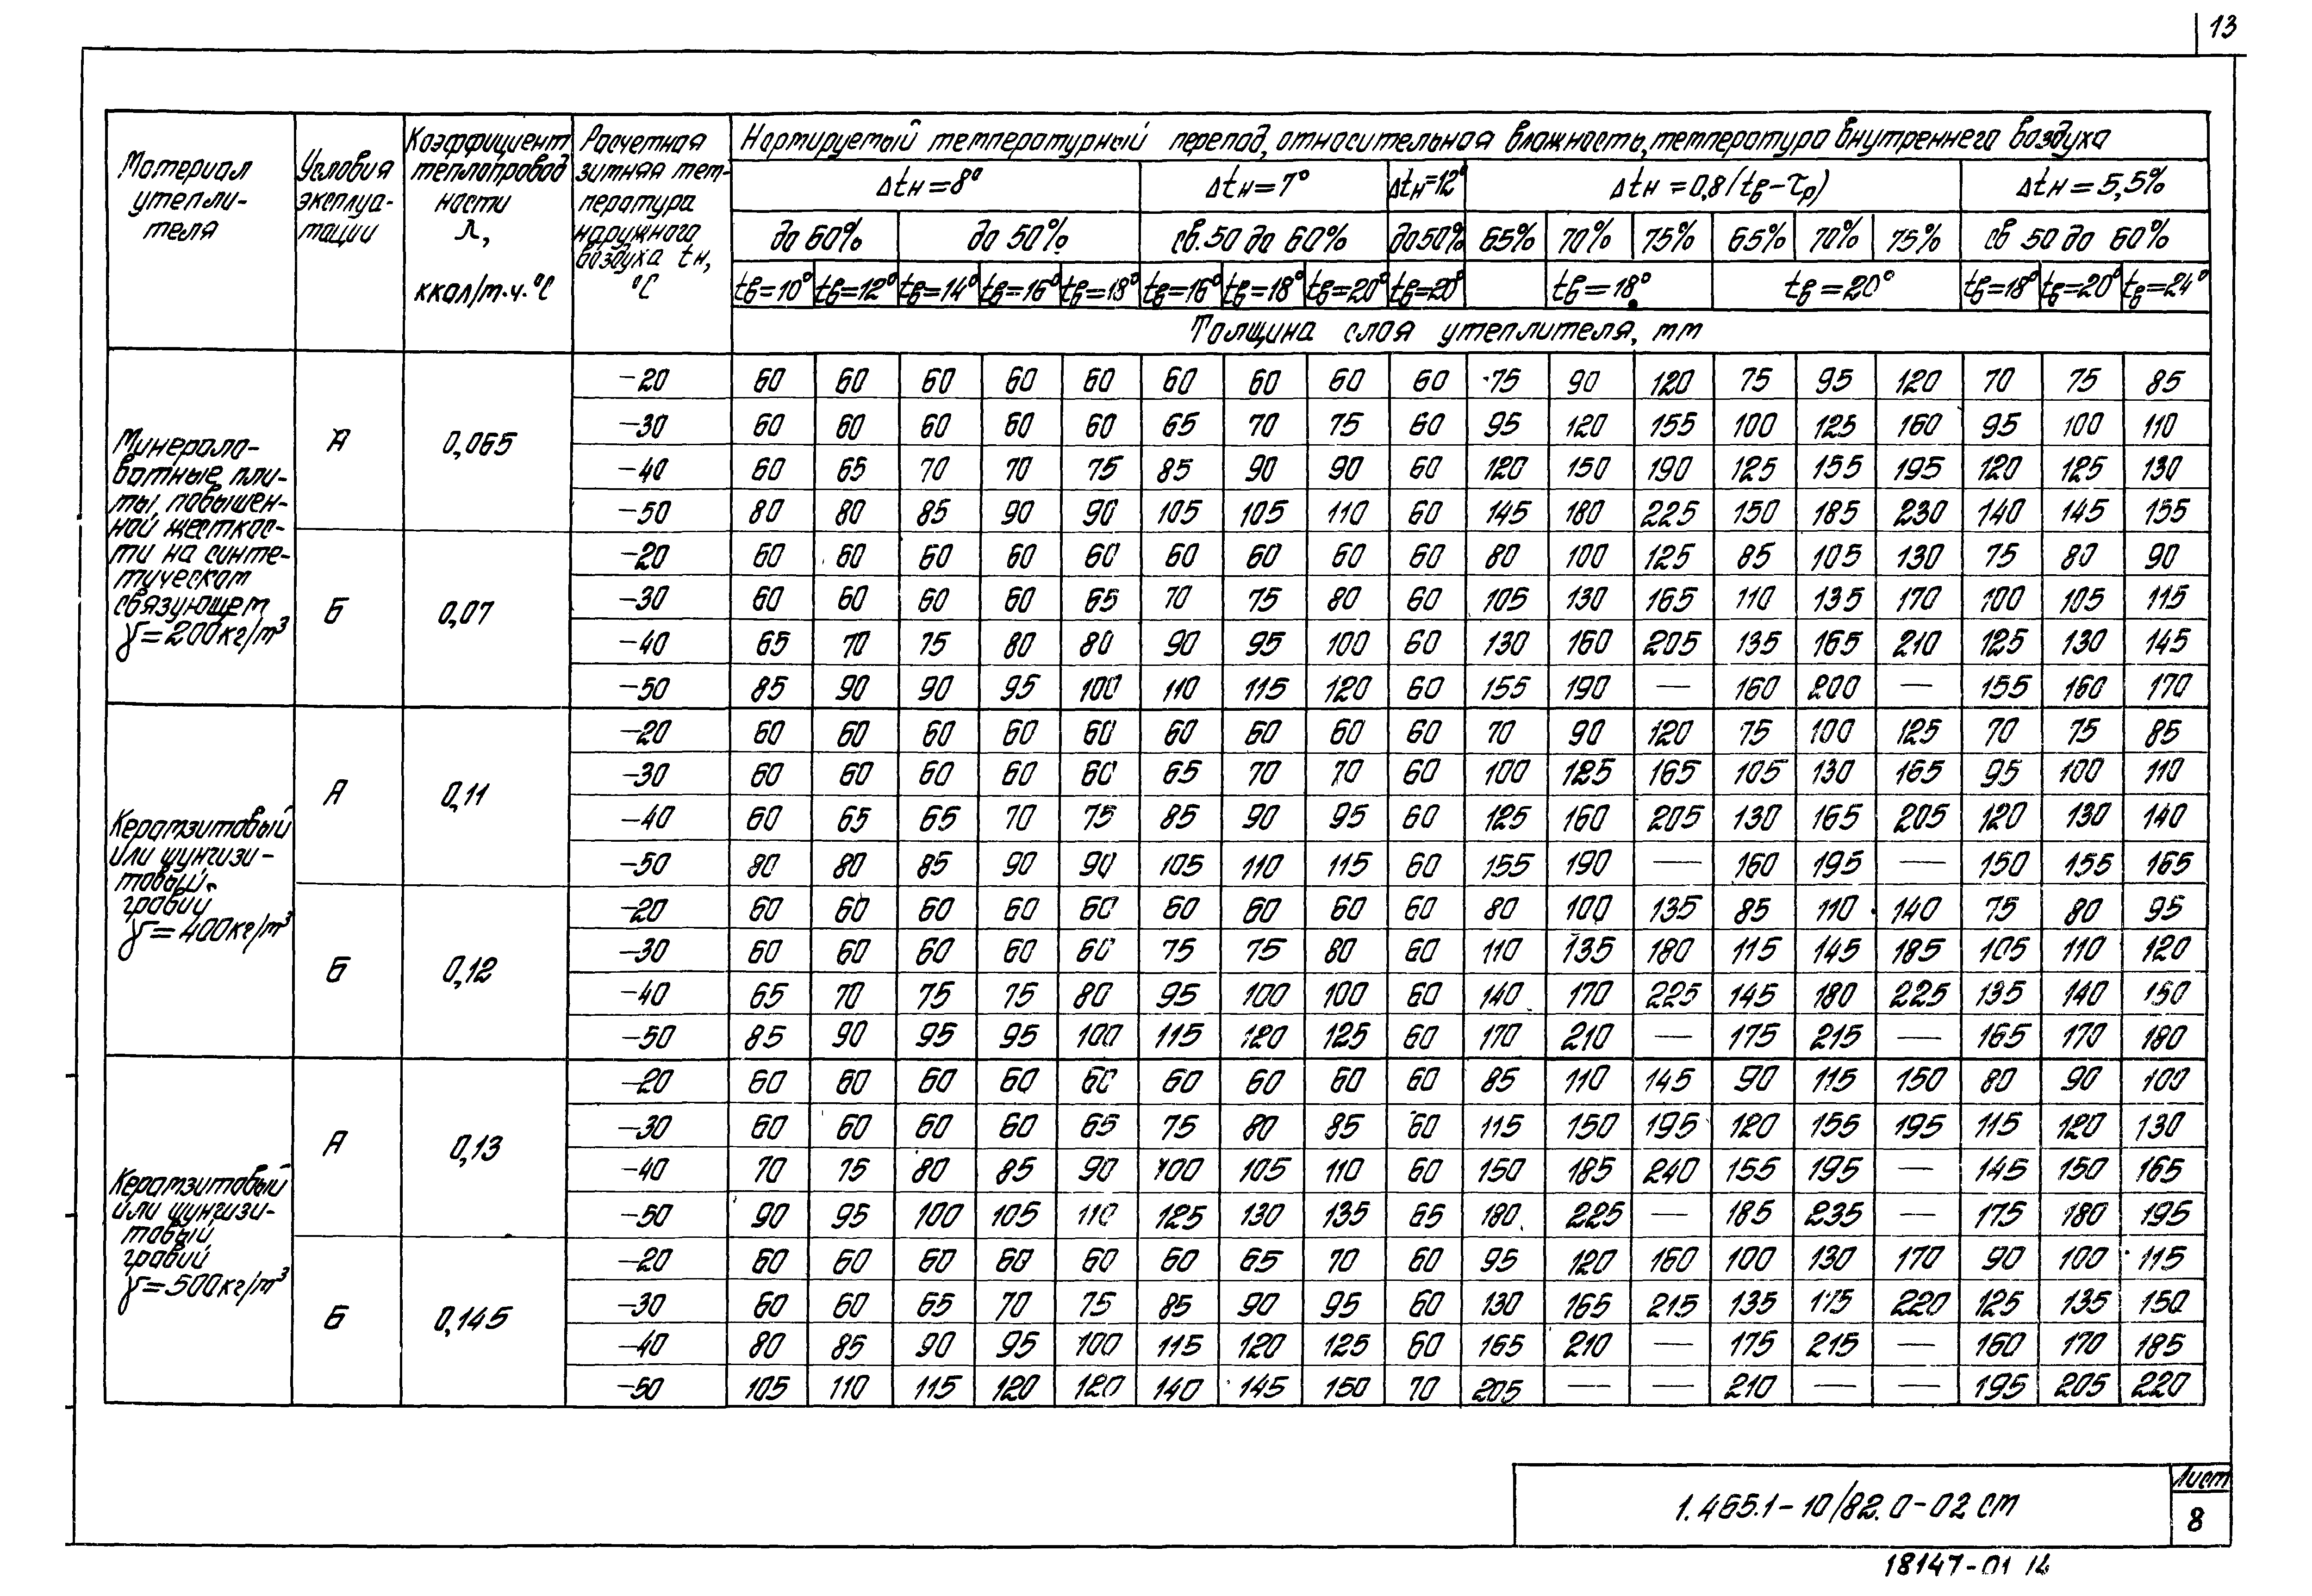 13
Материал утеплителя | Условия эксплуатации | Коэффициент теплопроводности λ, ккал/м·ч·°С | Расчетная зимняя температура наружного воздуха tн, °С | Нормируемый температурный перепад, относительная влажность, температура внутреннего воздуха
Δtн=8° | Δtн=7° | Δtн=12° | Δtн=0,8(tв-τр) | Δtн=5,5%
до 60% | до 50% | св.50 до 60% | до 50% | 65% | 70% | 75% | 65% | 70% | 75% | св 50 до 60%
tв=10° | tв=12° | tв=14° | tв=16° | tв=18° | tв=16° | tв=18° | tв=20° | tв=20° | tв=18° | tв=20° | tв=18° | tв=20° | tв=24°
Толщина слоя утеплителя, мм
Минераловатные плиты повышенной жесткости на синтетическом связующем γ=200кг/м³
А 0,065
-20 60 60 60 60 60 60 60 60 60 75 90 120 75 95 120 70 75 85
-30 60 60 60 60 60 65 70 75 60 95 120 155 100 125 160 95 100 110
-40 60 65 70 70 75 85 90 90 60 120 150 190 125 155 195 120 125 130
-50 80 80 85 90 90 105 105 110 60 145 180 225 150 185 230 140 145 155
Б 0,07
-20 60 60 60 60 60 60 60 60 60 80 100 125 85 105 130 75 80 90
-30 60 60 60 60 65 70 75 80 60 105 130 165 110 135 170 100 105 115
-40 65 70 75 80 80 90 95 100 60 130 160 205 135 165 210 125 130 145
-50 85 90 90 95 100 110 115 120 60 155 190 — 160 200 — 155 160 170
Керамзитовый или шунгизитовый гравий γ=400кг/м³
А 0,11
-20 60 60 60 60 60 60 60 60 60 70 90 120 75 100 125 70 75 85
-30 60 60 60 60 60 65 70 70 60 100 125 165 105 130 165 95 100 110
-40 60 65 65 70 75 85 90 95 60 125 160 205 130 165 205 120 130 140
-50 80 80 85 90 90 105 110 115 60 155 190 — 160 195 — 150 155 165
Б 0,12
-20 60 60 60 60 60 60 60 60 60 80 100 135 85 110 140 75 80 95
-30 60 60 60 60 60 75 75 80 60 110 135 180 115 145 185 105 110 120
-40 65 70 75 75 80 95 100 100 60 140 170 225 145 180 225 135 140 150
-50 85 90 95 95 100 115 120 125 60 170 210 — 175 215 — 165 170 180
Керамзитовый или шунгизитовый гравий γ=500кг/м³
А 0,13
-20 60 60 60 60 60 60 60 60 60 85 110 145 90 115 150 80 90 100
-30 60 60 60 60 65 75 80 85 60 115 150 195 120 155 195 115 120 130
-40 70 75 80 85 90 100 105 110 60 150 185 240 155 195 — 145 150 165
-50 90 95 100 105 110 125 130 135 65 180 225 — 185 235 — 175 180 195
Б 0,145
-20 60 60 60 60 60 60 65 70 60 95 120 160 100 130 170 90 100 115
-30 60 60 65 70 75 85 90 95 60 130 165 215 135 175 220 125 135 150
-40 80 85 90 95 100 115 120 125 60 165 210 — 175 215 — 160 170 185
-50 105 110 115 120 120 140 145 150 70 205 — — 210 — — 195 205 220
1.465.1-10/82.0-02 СМ
Лист
8
18147-01 14